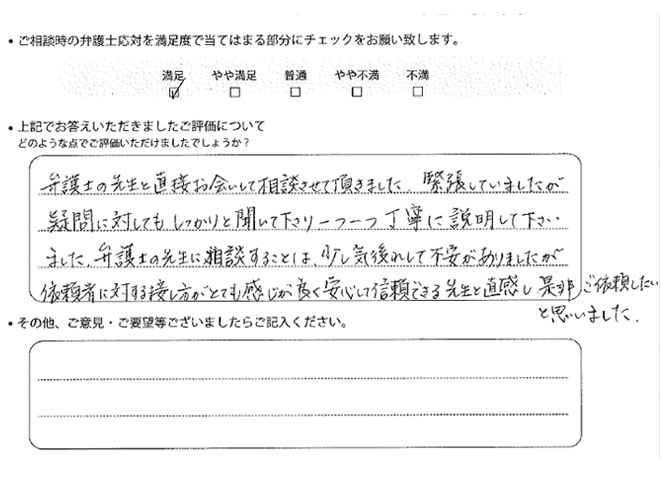 ・ご相談時の弁護士応対を満足度で当てはまる部分にチェックをお願い致します。
満足 やや満足 普通 やや不満 不満
・上記でお答えいただきましたご評価について
どのような点でご評価いただけましたでしょうか?
弁護士の先生と直接お会いして相談させて頂きました。緊張していましたが
疑問に対しても しっかりと聞いて下さり一つ一つ丁寧に説明して下さい
ました。弁護士の先生に相談することは、少し気後れして不安がありましたが
依頼者に対する接し方がとても感じが良く安心して信頼できる先生と直感し 是非ご依頼したい
と思いました。
・その他、ご意見・ご要望等ございましたらご記入ください。